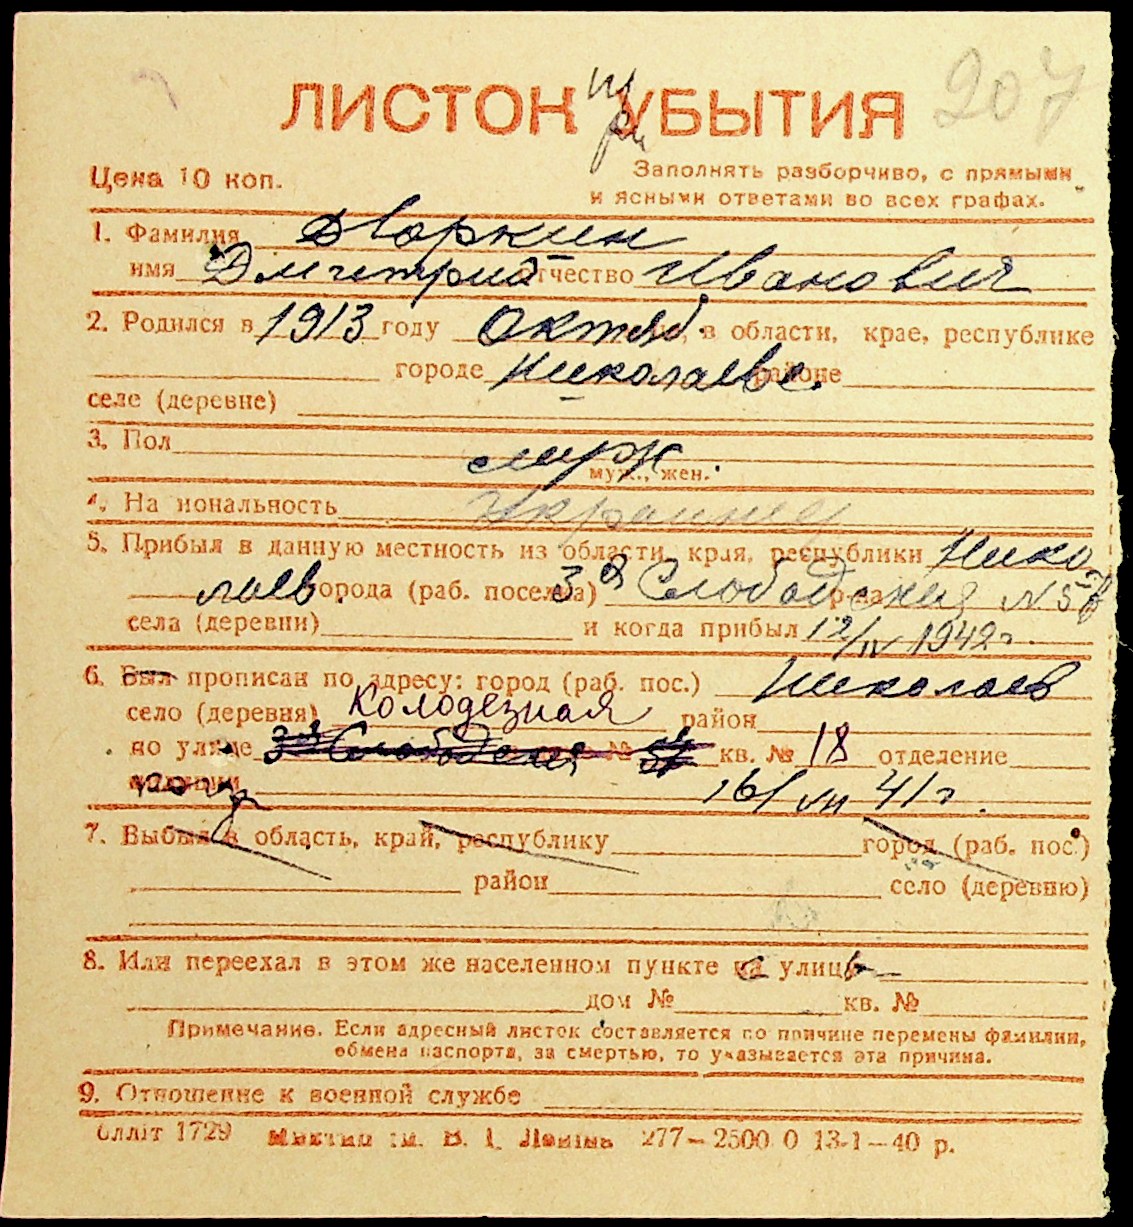 207
ЛИСТОК УБЫТИЯ
Цена 10 коп.
Заполнять разборчиво, с прямыми
и ясными ответами во всех графах.
1. Фамилия Дворкин
имя Дмитрий отчество Иванович
2. Родился в 1913 году Октяб. в области, крае, республике
городе Николаеве районе
селе (деревне)
3. Пол муж.
муж., жен.
4. Национальность Украинец
5. Прибыл в данную местность из области, края, республики Нико
лаев города (раб. поселка) 3я Слободская р-на N 57
села (деревни) и когда прибыл 12/IV 1942г.
6. Был прописан по адресу: город (раб. пос.) Николаев
село (деревня) Колодезная район
по улице 3я Слободская № 57 кв. № 18 отделение
милиции 16/VII 41г.
7. Выбыл в область, край, республику город (раб. пос.)
район село (деревню)
8. Или переехал в этом же населенном пункте на улицу
дом № кв. №
Примечание. Если адресный листок составляется по причине перемены фамилии,
обмена паспорта, за смертью, то указывается эта причина.
9. Отношение к военной службе
Оллiт 1729 Ленiна 277—2500.0 13-1—40 р.